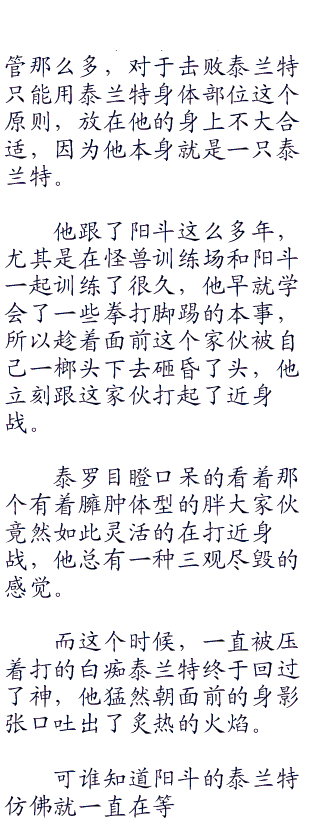 管那么多，对于击败泰兰特
只能用泰兰特身体部位这个
原则，放在他的身上不大合
适，因为他本身就是一只泰
兰特。
他跟了阳斗这么多年，
尤其是在怪兽训练场和阳斗
一起训练了很久，他早就学
会了一些拳打脚踢的本事，
所以趁着面前这个家伙被自
己一榔头下去砸昏了头，他
立刻跟这家伙打起了近身
战。
泰罗目瞪口呆的看着那
个有着臃肿体型的胖大家伙
竟然如此灵活的在打近身
战，他总有一种三观尽毁的
感觉。
而这个时候，一直被压
着打的白痴泰兰特终于回过
了神，他猛然朝面前的身影
张口吐出了炙热的火焰。
可谁知道阳斗的泰兰特
仿佛就一直在等